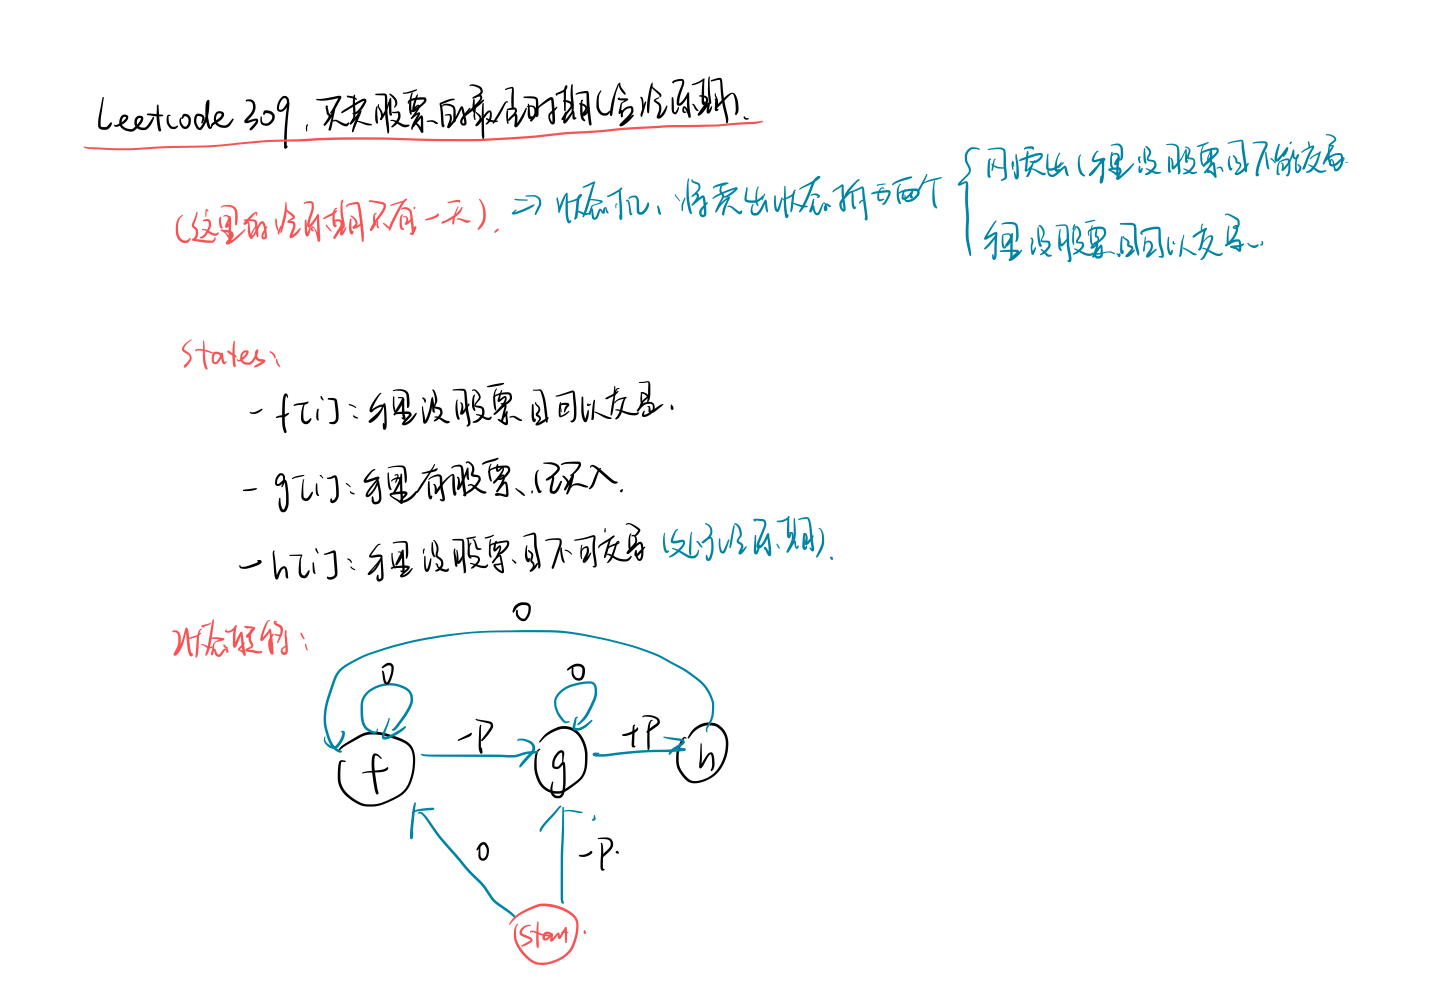 Leetcode 309. 买卖股票的最佳时期(含冷冻期).
(这里的冷冻期只有一天). => 状态机、将卖出状态拆为两个
刚卖出(手里没股票且不能交易
手里没股票且可以交易.
States:
- f[i]: 手里没股票且可以交易.
- g[i]: 手里有股票、已买入.
- h[i]: 手里没股票且不可交易 (处于冷冻期).
状态转移:
0
0 0
-P +P
f g h
0 -P.
Start.